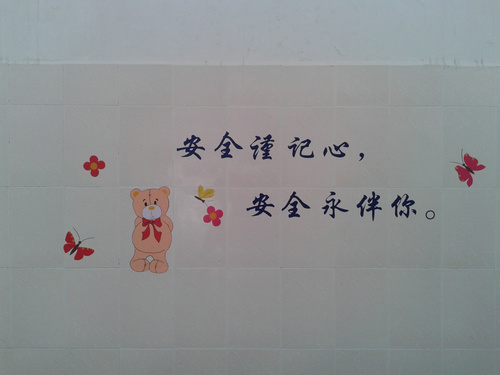 安全谨记心，
安全永伴你。